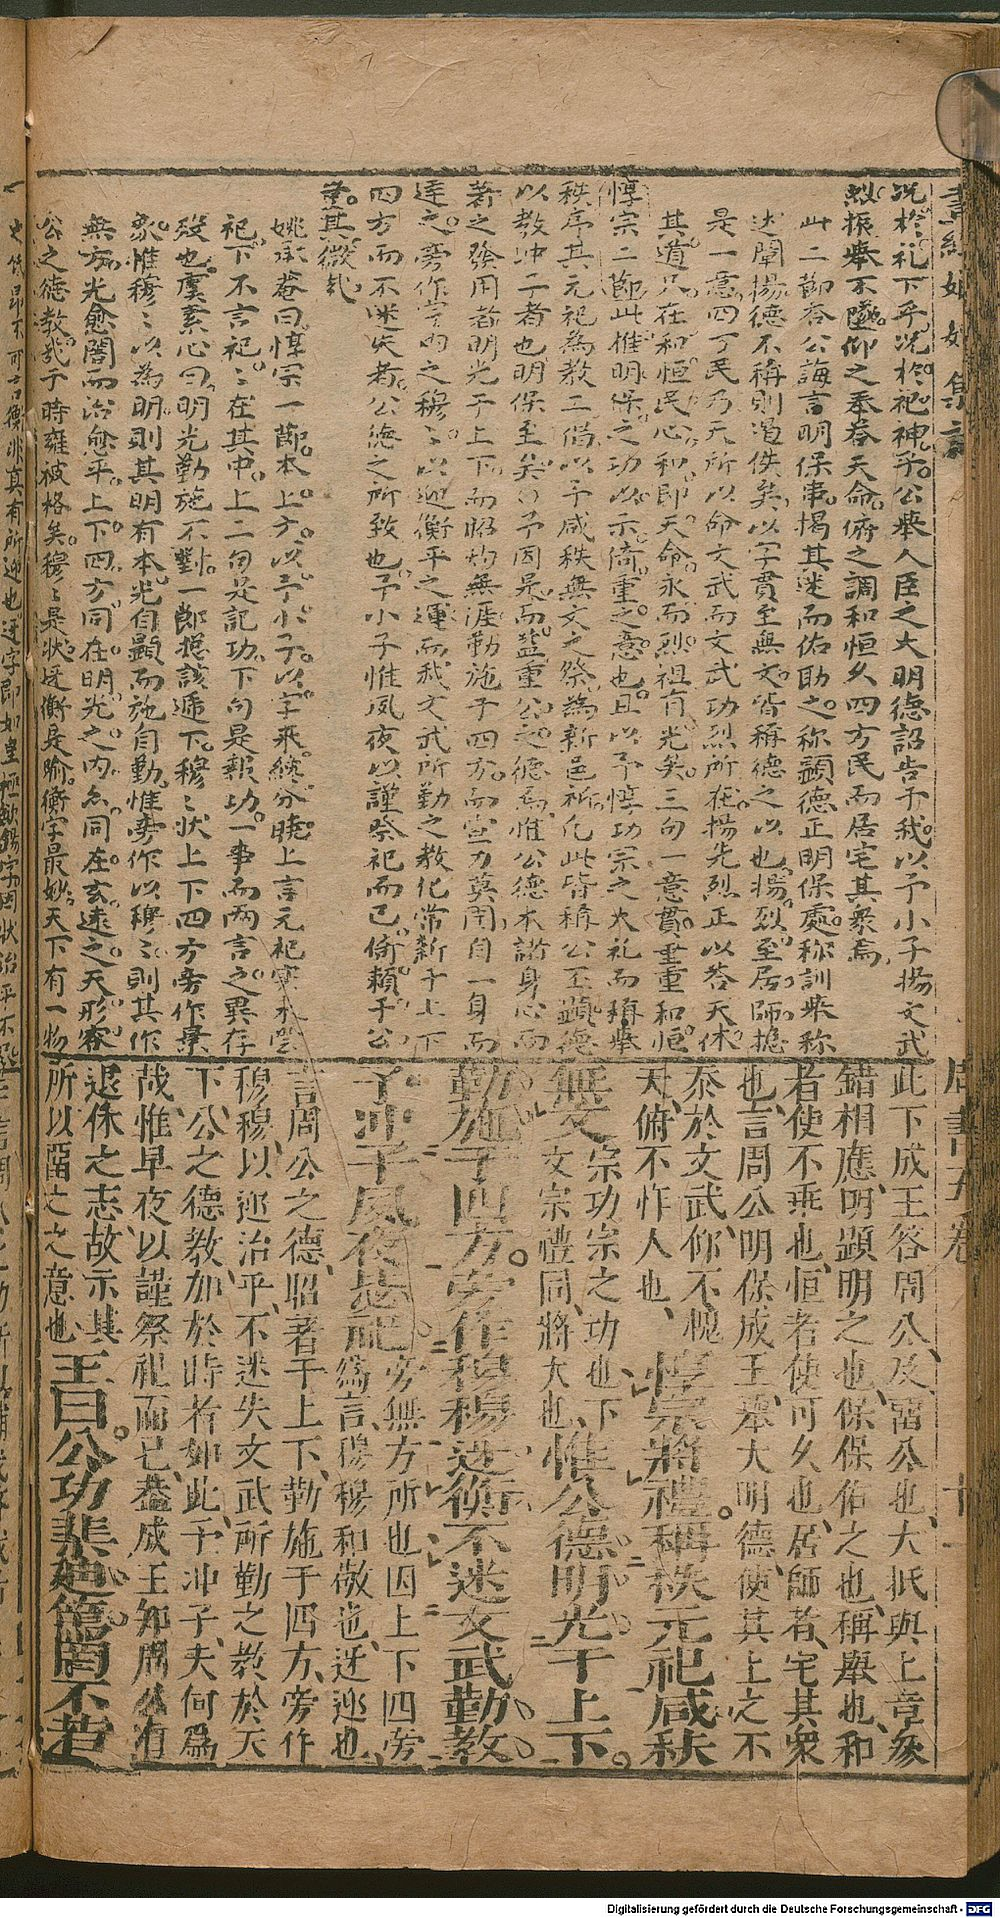 况於礼下乎况於祀神乎公奉人臣之大明德詔告于我以予小子揚文武
烈振舉不墜仰之奉荅天命俯之調和恒久四方民而居宅其衆焉
此二節荅公誨言明保事揭其迷而佑助之称顯德正明保處称訓来称
述闡揚德不稱則湮佚矣以字貫至無文皆稱德之以也揚烈至居師揔
是一意四丁民乃天所以命文武而文武功烈所在揚先烈正以荅天休
其道只在和恒民心和即天命永而烈祖有光矣三句一意貫重重和恒
惇宗二節此推明保之功以示倚重之意也且以予惇功宗之大礼而稱舉
秩序其元祀為教工倡以予咸秩無文之祭為新邑祈化此皆稱公丕顯德
以教冲子者也明保至矣予因是而益重公之德焉惟公德本諸身心而
著之發用者明光于上下而昭灼無涯勤施于四方而宣力莫罔自一身而
達之旁作穹内之穆〻以迎衡平之運而我文武所勤之教化常新于上下
四方而不迷失者公德之所致也予小子惟夙夜以謹祭祀而已倚賴于公
重其微哉
姚承菴曰惇宗一節本上方以予小子以字来緂分曉上言元祀寔本登
祀下不言祀〻在其中上二句是記功下句是報功一事而两言之異存
殁也虞素心曰明光勤施不對一節揔該遞下穆〻状上下四方旁作景
象惟穆〻以為明則其明有本光自顯而施自勤惟旁作以穆〻則其作
無方光愈闇而治愈平上下四方同在明光之内亦同在玄遠之天形容
公之德教哉于時雍被格矣穆〻是状迓衡是喻衡字最妙天下有一物
此下成王答周公及留公也大抵與上章叅
錯相應明顯明之也保保佑之也稱舉也和
者使不乖也恒者使可久也居師者宅其衆
也言周公明保成王舉大明德使其上之不
忝於文武仰不愧
天俯不怍人也惇宗將禮稱秩元祀咸秩
無文宗功宗之功也下
文宗禮同將大也惟公德明光于上下
勤施于四方旁作穆穆迓衡不迷文武勤教
予冲子夙夜毖祀旁無方所也因上下四旁
為言穆穆和敬也迓迎也
言周公之德昭著于上下勤施于四方旁作
穆穆以迎治平不迷失文武所勤之教於天
下公之德教加於時者如此予冲子夫何為
哉惟早夜以謹祭祀而已葢成王知周公有
退休之志故示其
所以留之之意也王曰公功棐迪篤罔不若
Digitalisierung gefördert durch die Deutsche Forschungsgemeinschaft - DFG